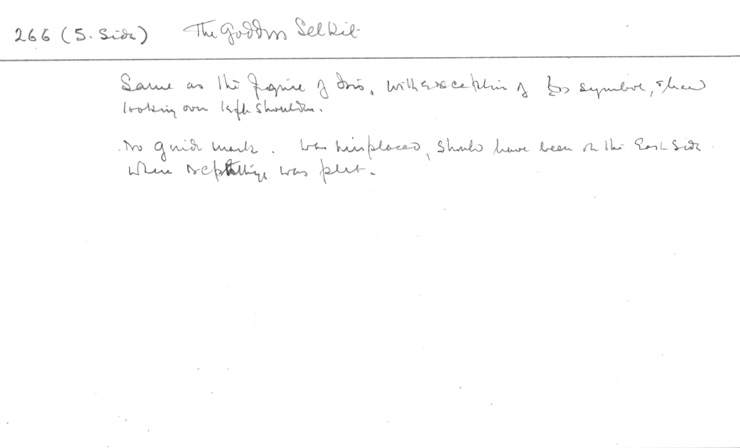 266 (S. Side) The Goddess Selkit
Same as the figure of Isis, with exception of symbol, & head
looking over left shoulder.
No guide mark. Was misplaced, should have been on the East Side
where Nephthys was put.